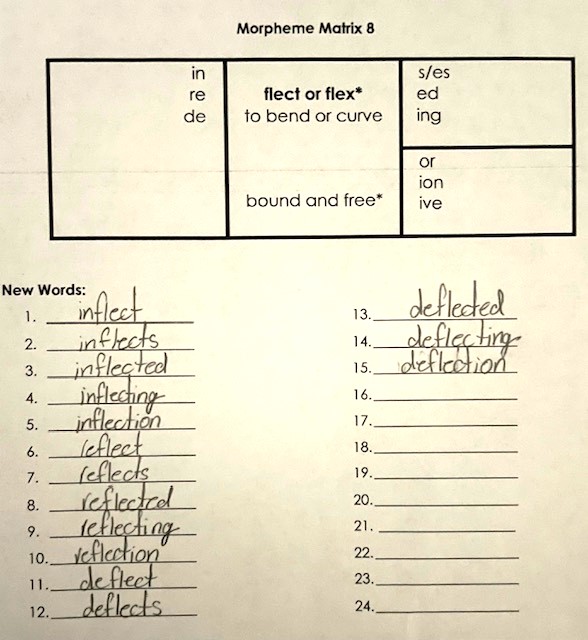 Morpheme Matrix 8
in
re
de
flect or flex*
to bend or curve
bound and free*
s/es
ed
ing
or
ion
ive
New Words:
1. inflect
2. inflects
3. inflected
4. inflecting
5. inflection
6. reflect
7. reflects
8. reflected
9. reflecting
10. reflection
11. deflect
12. deflects
13. deflected
14. deflecting
15. deflection
16.
17.
18.
19.
20.
21.
22.
23.
24.